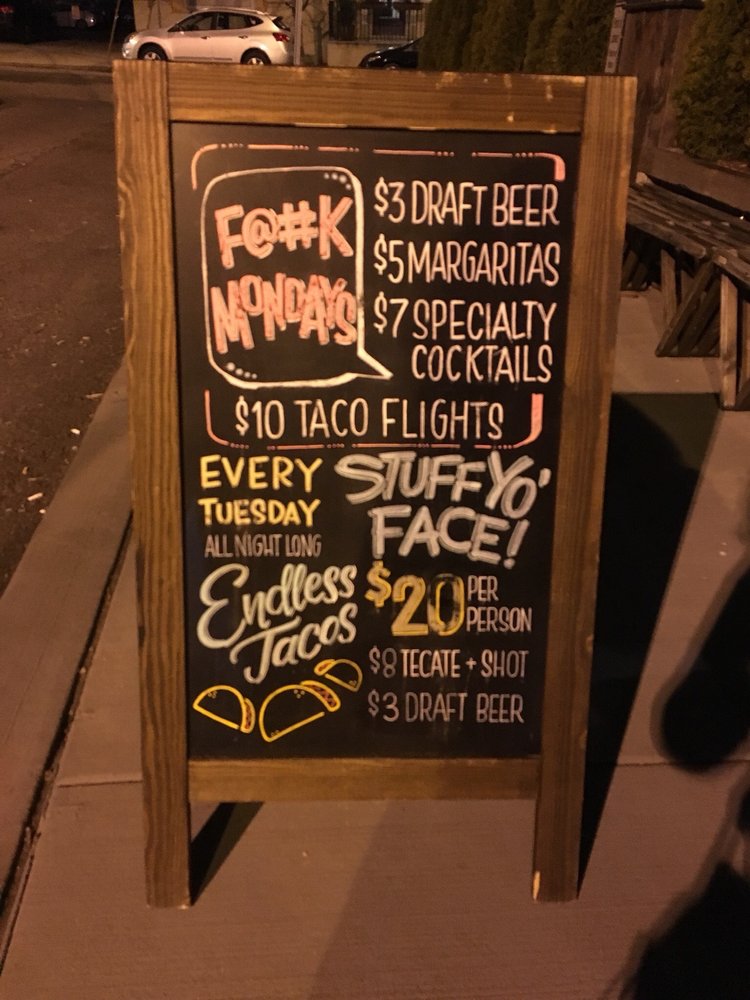 F@#K
MONDAYS
$3 DRAFT BEER
$5 MARGARITAS
$7 SPECIALTY
COCKTAILS
$10 TACO FLIGHTS
EVERY
TUESDAY
ALL NIGHT LONG
Endless
Tacos
STUFF YO'
FACE!
$20 PER
PERSON
$8 TECATE + SHOT
$3 DRAFT BEER